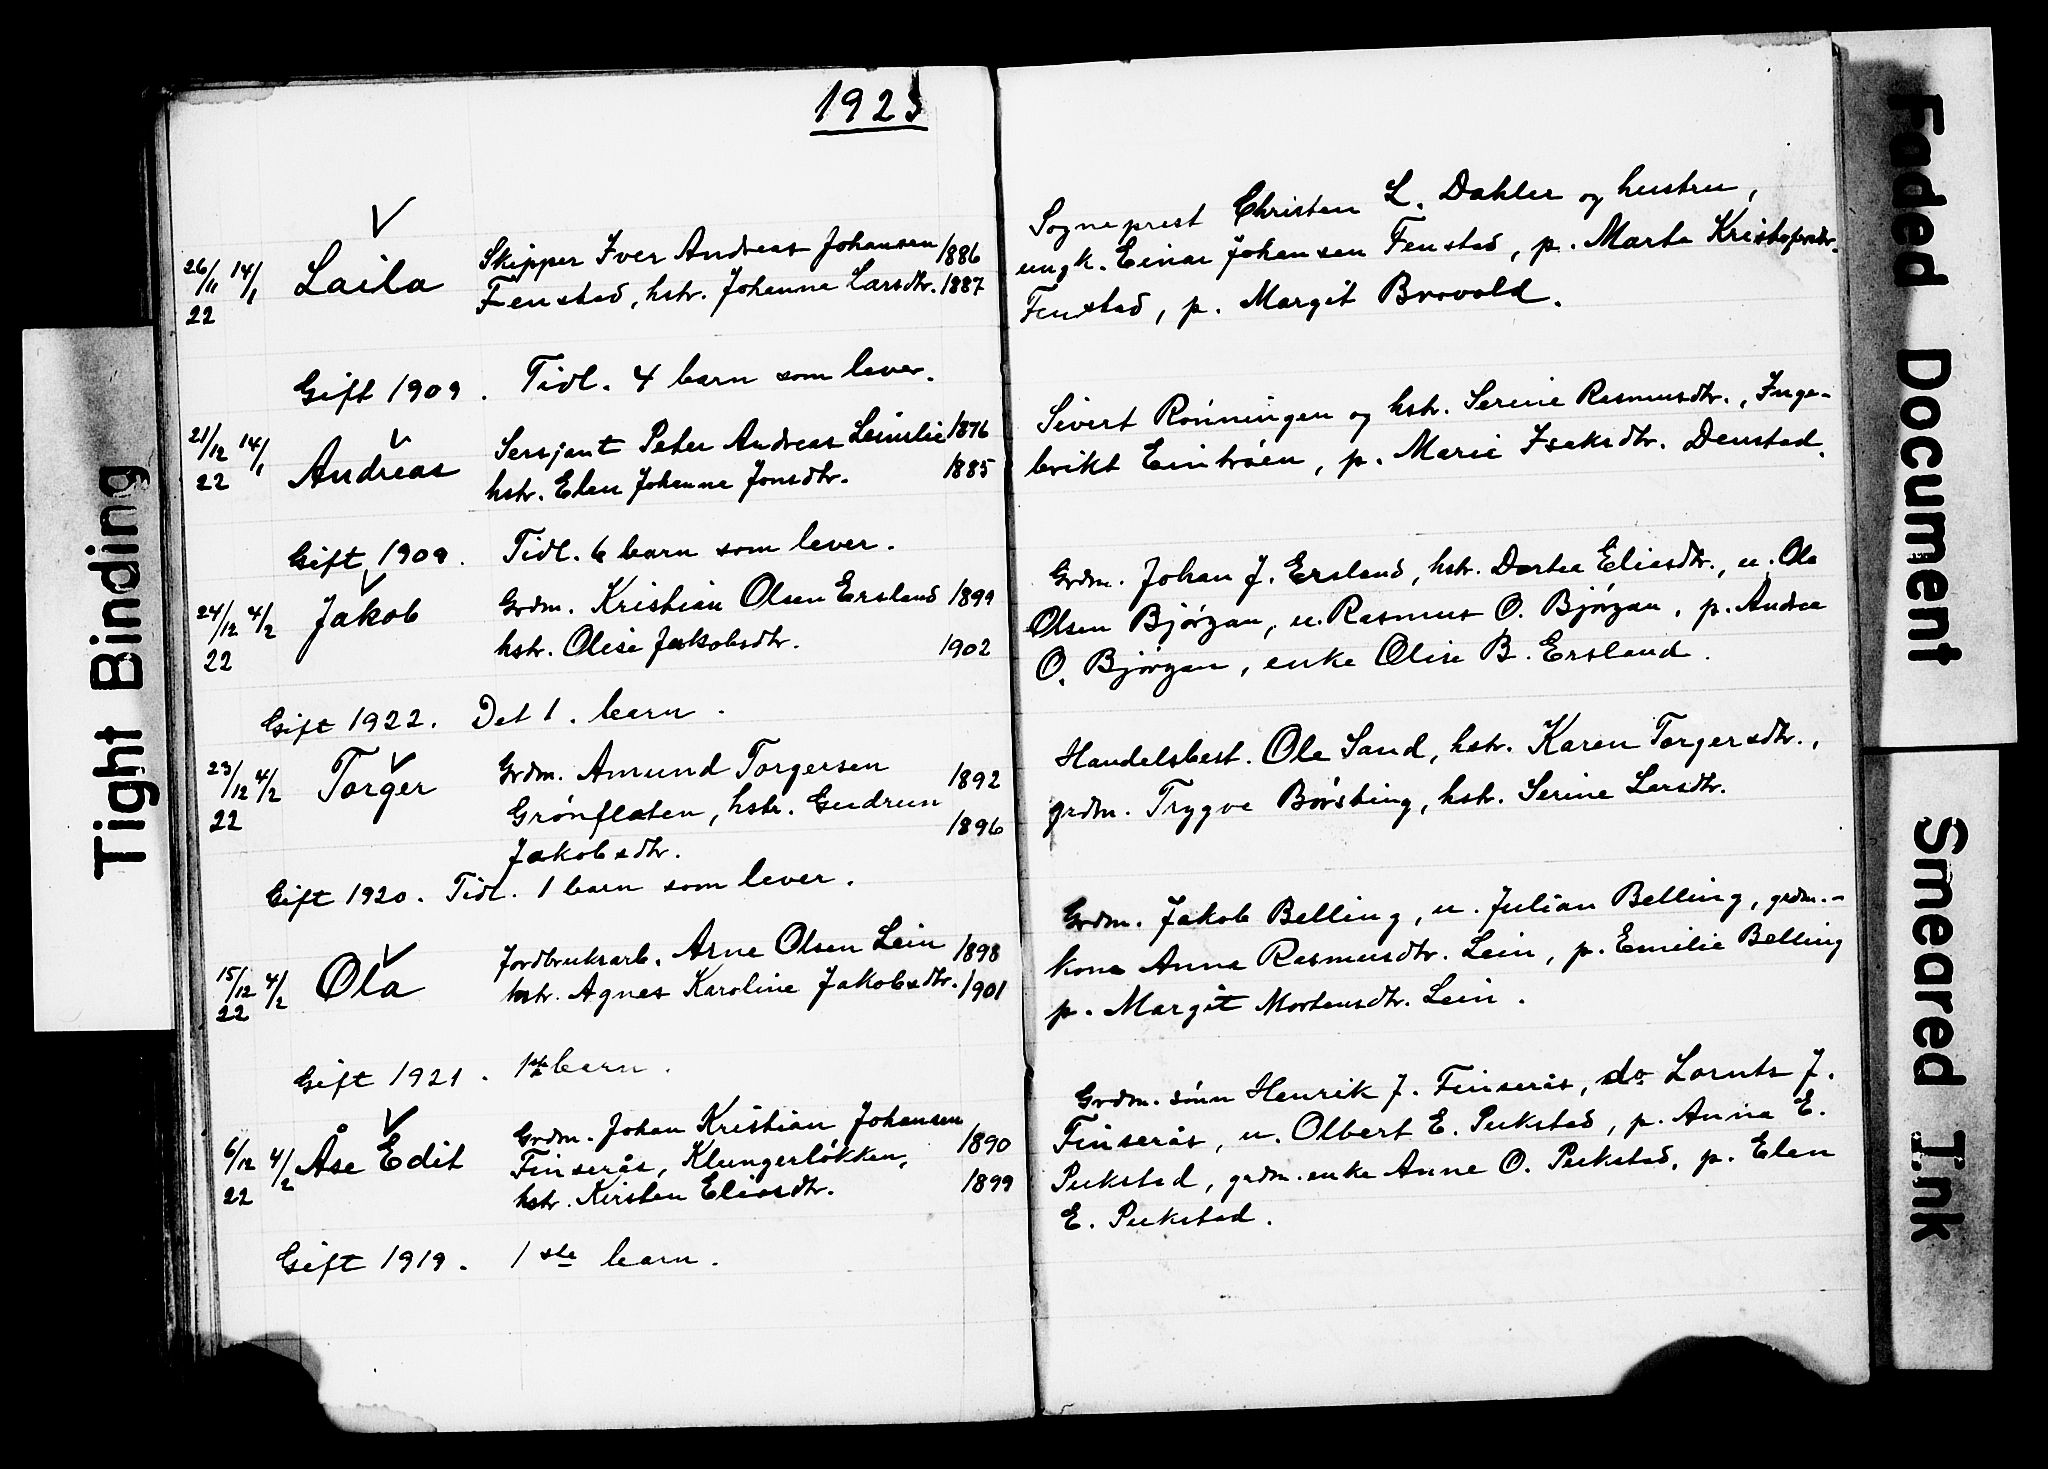 1923
26/11 14/1 Laila Skipper Iver Andreas Johansen 1886
22 Fenstad, hstr. Johanna Larsdtr. 1887
Gift 1909. Tidl. 4 barn som lever.
21/12 14/1 Andreas Sersjant Peter Andreas Leinslie 1876
22 hstr. Elen Johanna Jonsdtr. 1885
Gift 1909. Tidl. 6 barn som lever.
24/12 4/2 Jakob Grdm. Kristian Olsen Ersland 1899
22 hstr. Olise Jakobsdtr. 1902
Gift 1922. Det 1. barn.
23/12 4/2 Torger Grdm. Amund Torgersen 1892
22 Grónflaten, hstr. Gudrun 1896
Jakobsdtr.
Gift 1920. Tidl. 1 barn som lever.
15/12 4/2 Ola Jordbruksarb. Arne Olsen Lein 1898
22 hstr. Agnes Karoline Jakobsdtr. 1901
Gift 1921. 1ste barn.
6/12 4/2 Åse Edit Grdm. Johan Kristian Johansen 1890
22 Finserås, Klungerlókken,
hstr. Kirsten Eliasdtr. 1899
Gift 1919. 1ste barn.
Sogneprest Christen L. Dahler og hustru,
ungk. Einar Johansen Fenstad, p. Marta Kristofersdtr.
Fenstad, p. Margit Brovold.
Sivert Rónningen og hstr. Serine Rasmusdtr., Inge-
brikt Eintróen, p. Marie Isaksdtr. Denstad.
Grdm. Johan J. Ersland, hstr. Dortea Eliasdtr., u. Ola
Olsen Bjórgan, u. Rasmus O. Bjórgan, p. Andrea
O. Bjórgan, enke Olise B. Ersland.
Handelsbest. Ole Sand, hstr. Karen Torgersdtr.,
grdm. Trygve Bórsting, hstr. Serine Larsdtr.
Grdm. Jakob Belling, u. Julian Belling, grdm.-
kone Anna Rasmusdtr. Lein, p. Emilie Belling
p. Margit Mortensdtr. Lein.
Grdm. sónn Henrik J. Finserås, do Lornts J.
Finserås, u. Olbert E. Pukstad, p. Anna E.
Pukstad, grdm. enke Anne O. Pukstad, p. Elen
E. Pukstad.
Tight Binding
Faded Document
Smeared Ink